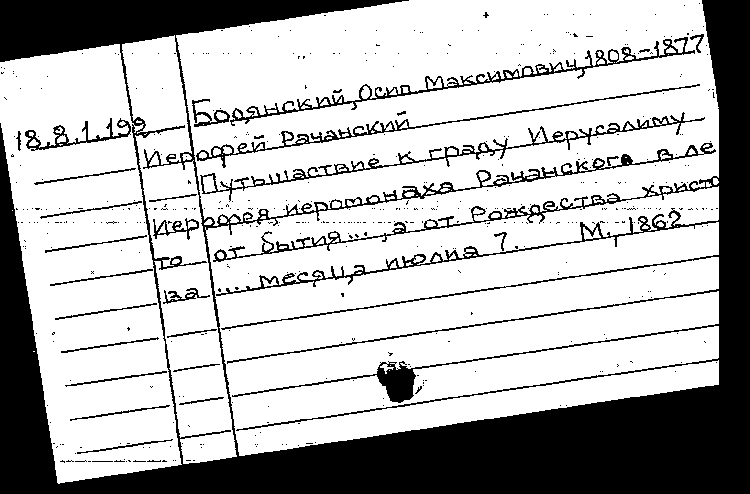 Бодянский, Осип Максимович, 1808-1877
18.8.1.192
Иерофей Рачанский
Путьшаствие к граду Иерусалиму
Иерофея, иеромонаха Рачанского в ле
то от бытия..., а от Рождества христо
ва .... месяца июлиа 7. М., 1862